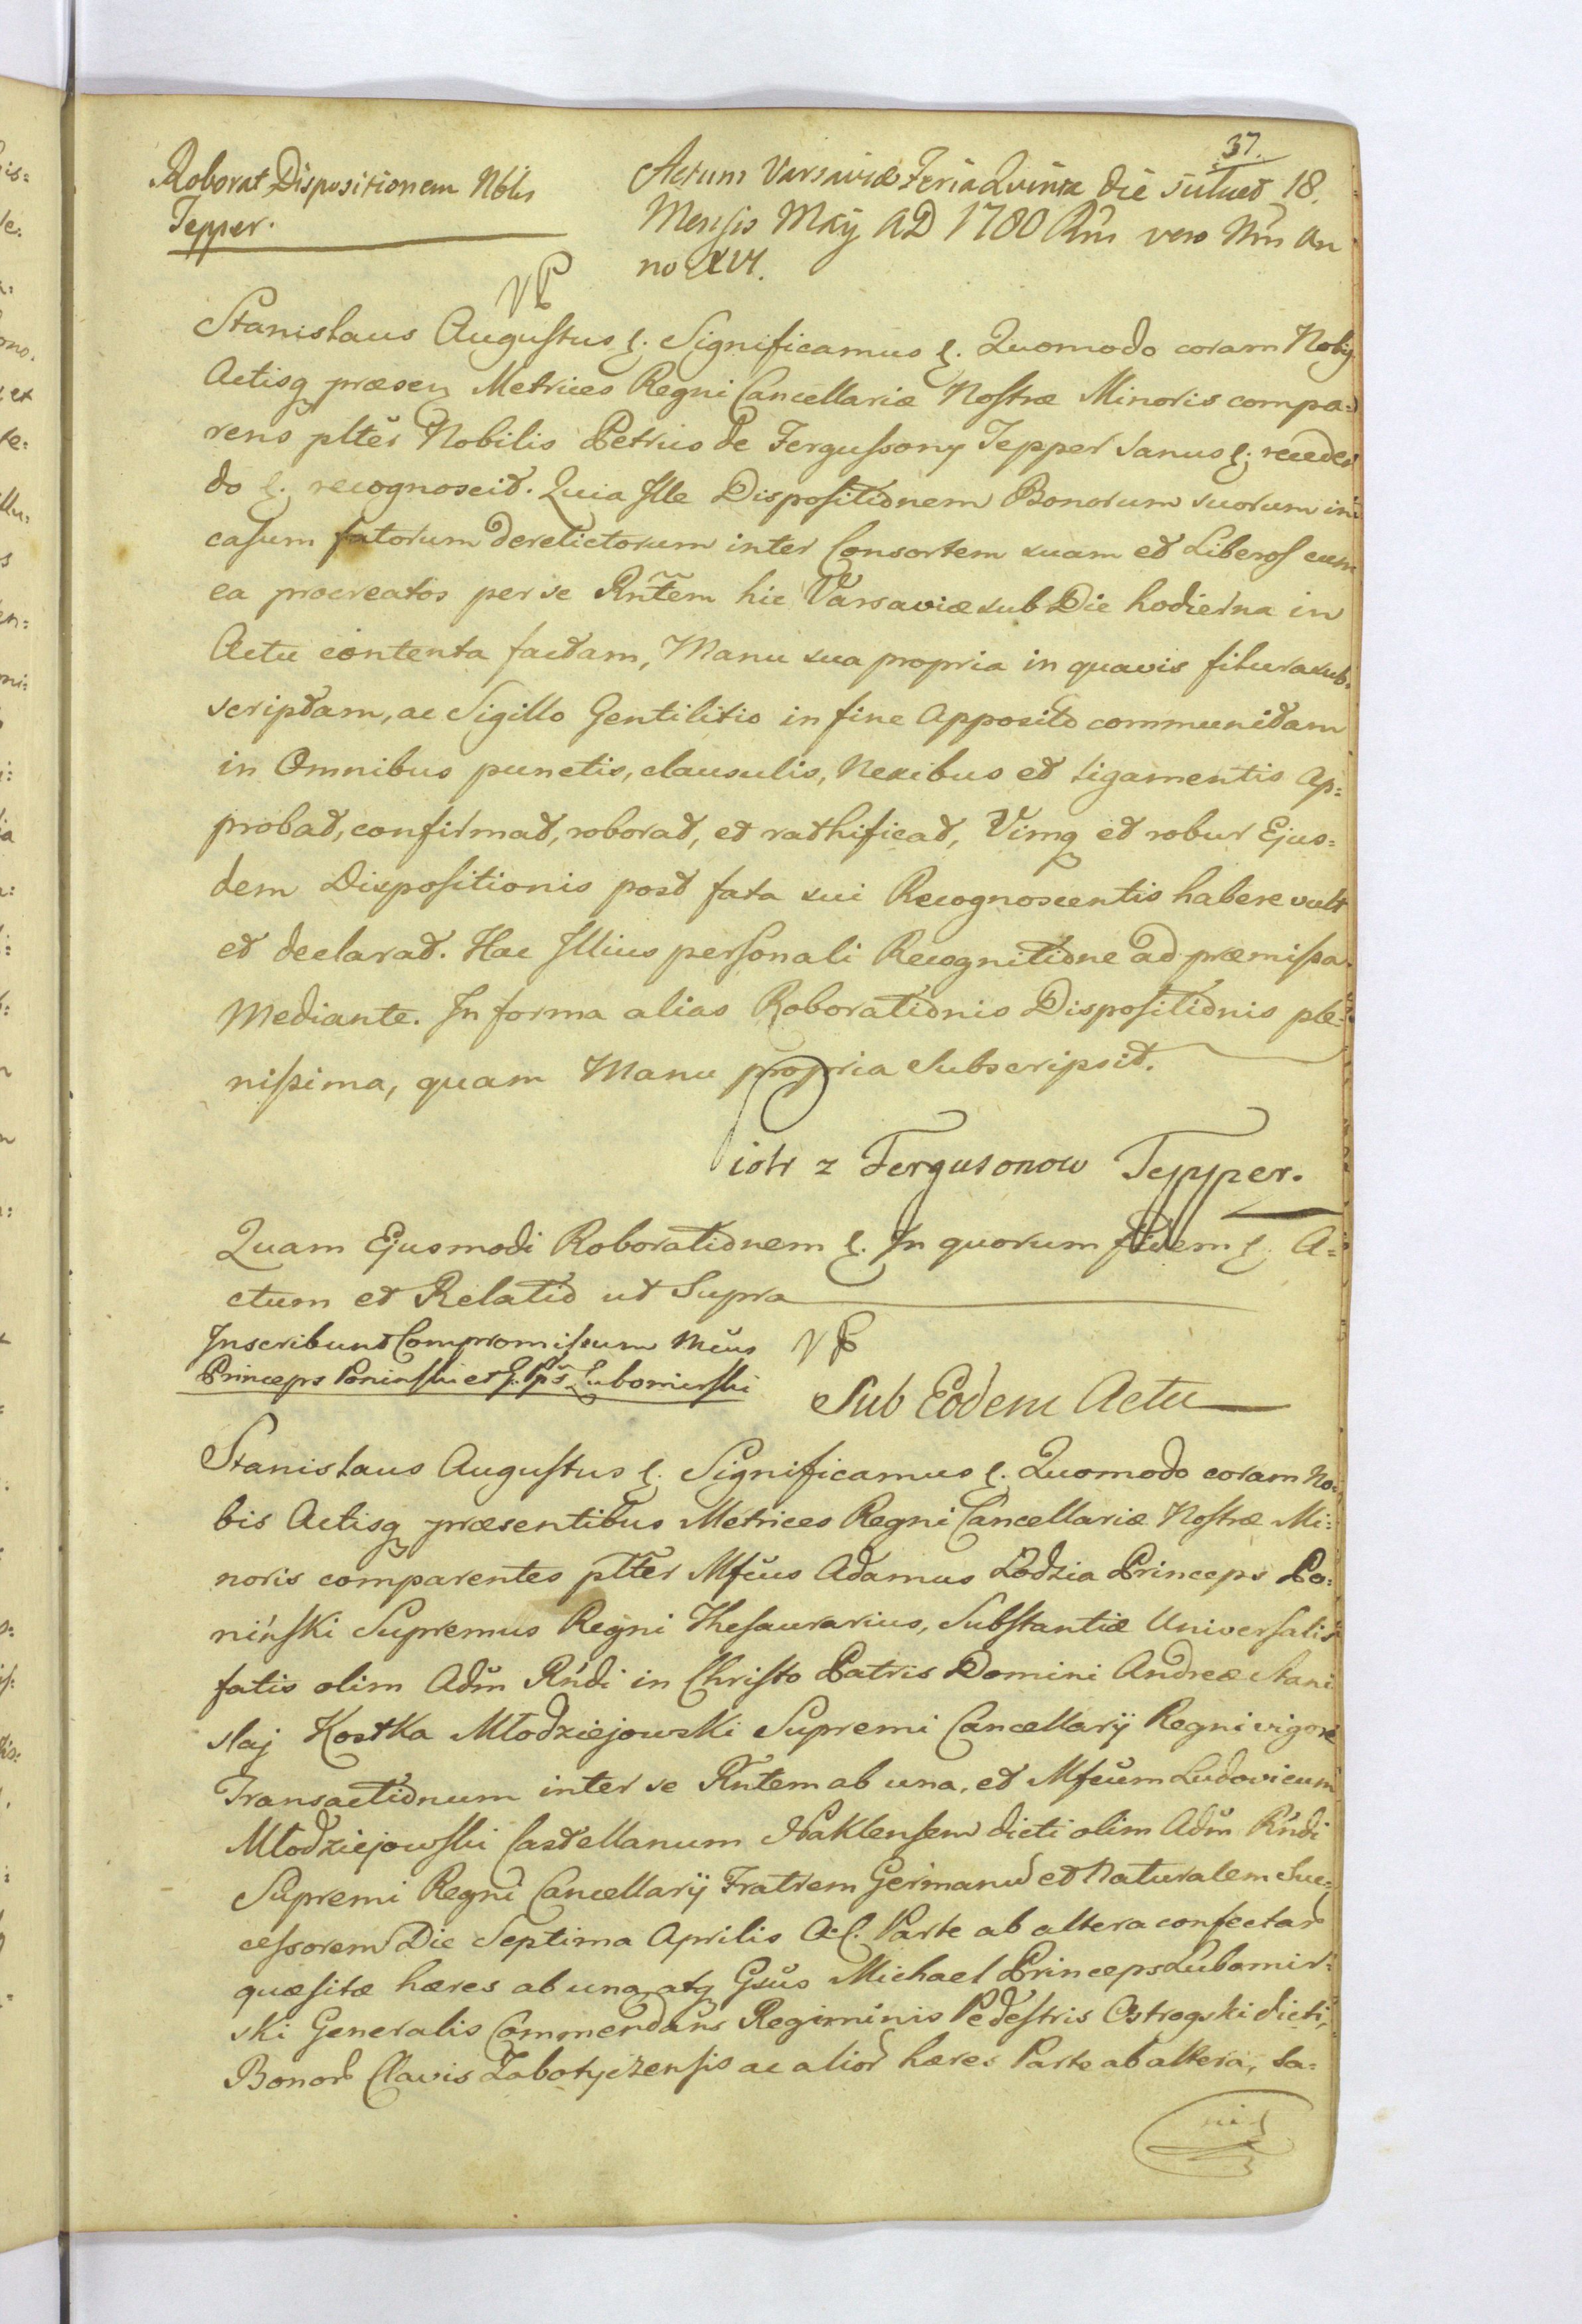 37.
Roborat Dispositionem Nblis
Tepper.
Actum Varsaviæ Feria Quinta die 18.
Mensis Maÿ AD 1780 Rñi vero Nri An
no XVI.
Stanislaus Augustus &. Significamus &. Quomodo coram Nobis
Actisq præsen Metrices Regni Cancellariæ Nostræ Minoris compa=
rens plter Nobilis Petrus de Fergussony Tepper Sanus &.
do &. recognoscit. Quia Ille Dispositionem Bonorum suorum in
casum fatorum derelictorum inter Consortem suam et Liberos cum
ea procreatos per se Rntem hic Varsaviæ sub Die hodierna in
Actu contenta factam, Manu sua propria in quavis filura sub=
scriptam, ac Sigillo Gentilitio in fine Apposito communitam
in Omnibus punctis, clausulis, Nexibus et ligamentis Ap=
probat, confirmat, roborat, et rathificat, Vimq et robur Ejus=
dem Dispositionis post fata sui Recognoscentis habere vult
et declarat. Hac Illius personali Recognitione ad præmissa
Mediante. In forma alias Roborationis Dispositionis ple=
nissima, quam Manu propria Subscripsit.
Piotr z Fergusonow Tepper.
Quam Ejusmodi Roborationem &. In quorum fidem &. A=
ctum et Relatio ut Supra
Inscribunt Compromissum
Princeps Poninski et Lubomirski
Sub Eodem Actu
Stanislaus Augustus &. Significamus &. Quomodo coram No=
bis Actisq præsentibus Metrices Regni Cancellariæ Nostræ Mi=
noris comparentes plter Mfcus Adamus Łodzia Princeps Po=
niński Supremus Regni Thesaurarius, Substantiæ Universalis
fatis olim Adm Rndi in Christo Patris Domini Andreæ Stani
slaj Kostka Młodziejowski Supremi Cancellarÿ Regni vigore
Transactionum inter se Rntem ab una, et Mfcum Ludovicum
Młodziejowski Castellanum Naklensem dicti olim Adm Rndi
Supremi Regni Cancellarÿ Fratrem Germanu et Naturalem Suc=
cessorem Die Septima Aprilis A.C. Parte ab altera confectar
quæsitæ hæres ab una atq Gsus Michael Princeps Lubomir=
ski Generalis Commendans Regiminis Pedestris Ostrogski dicti,
Bonor Clavis Zabotyczensis ac alior hæres Parte ab altera, Sa=